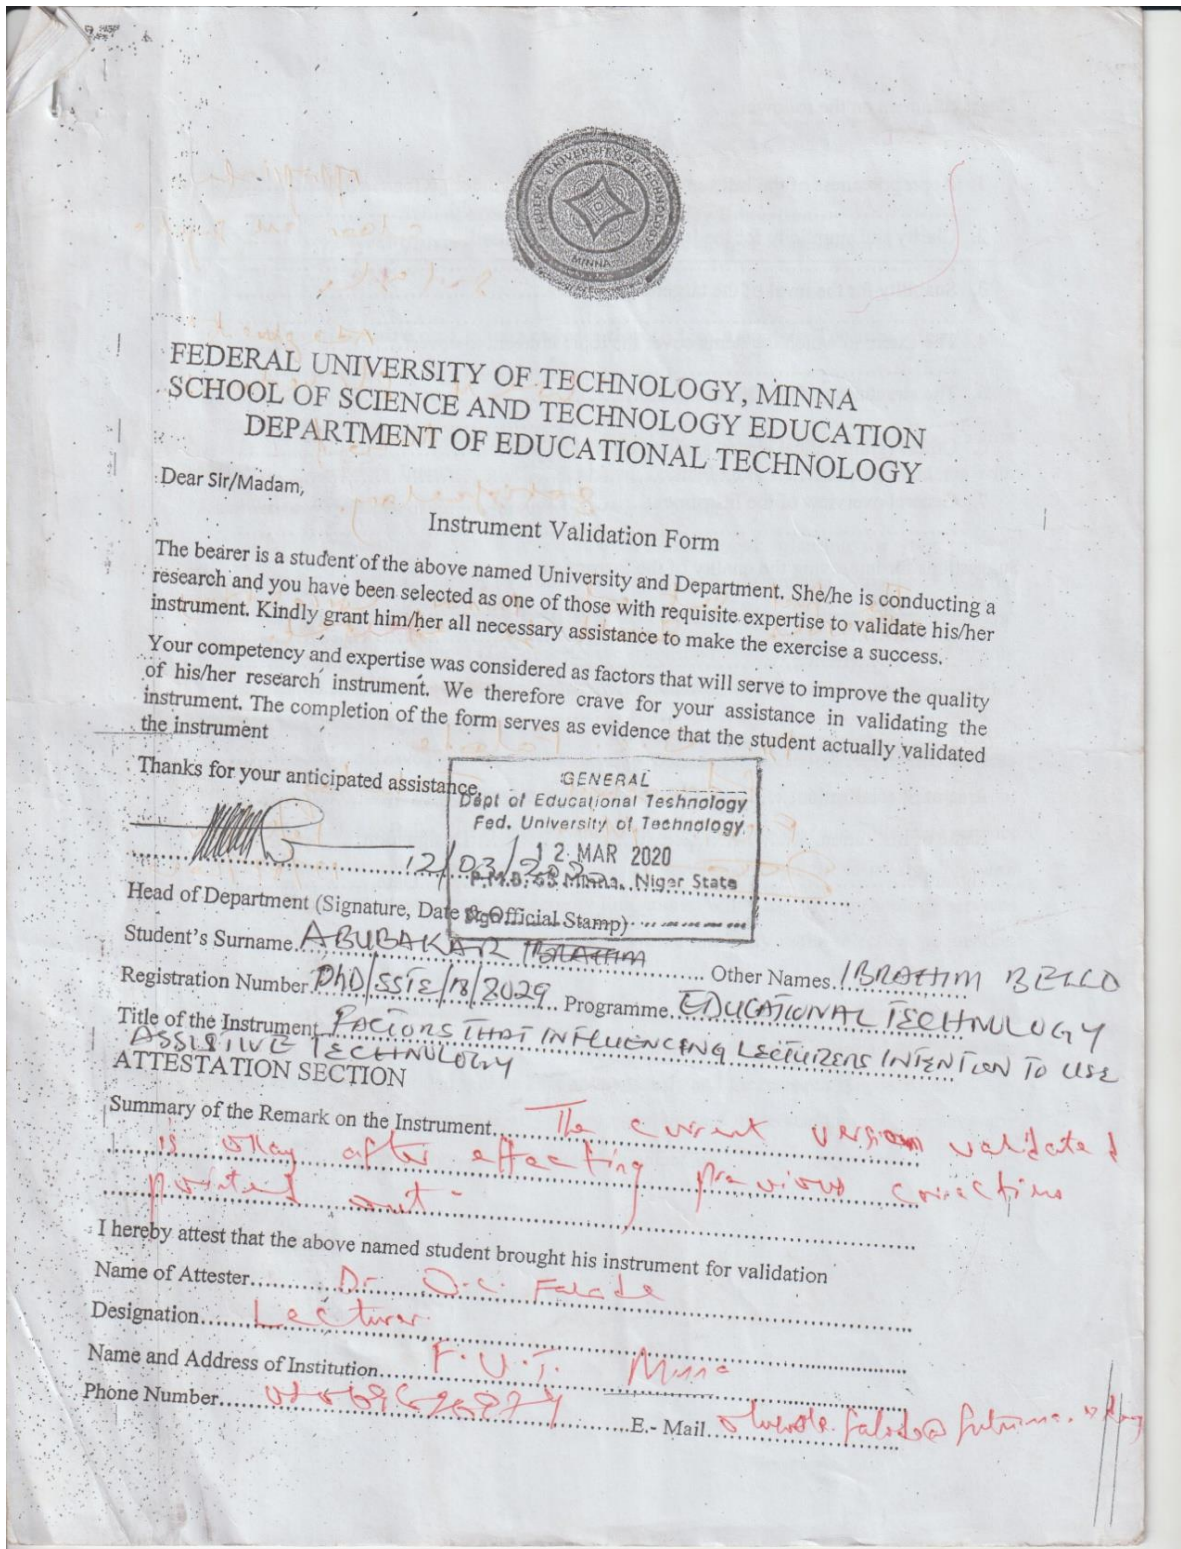 FEDERAL UNIVERSITY OF TECHNOLOGY
MINNA
FEDERAL UNIVERSITY OF TECHNOLOGY, MINNA
SCHOOL OF SCIENCE AND TECHNOLOGY EDUCATION
DEPARTMENT OF EDUCATIONAL TECHNOLOGY
Dear Sir/Madam,
Instrument Validation Form
The bearer is a student of the above named University and Department. She/he is conducting a
research and you have been selected as one of those with requisite expertise to validate his/her
instrument. Kindly grant him/her all necessary assistance to make the exercise a success.
Your competency and expertise was considered as factors that will serve to improve the quality
of his/her research instrument. We therefore crave for your assistance in validating the
instrument. The completion of the form serves as evidence that the student actually validated
the instrument
Thanks for your anticipated assistance.
GENERAL
Dept of Educational Technology
Fed. University of Technology.
12 MAR 2020
12/03/2020
P.M.B. 65 Minna, Niger State
Sign
Head of Department (Signature, Date & Official Stamp)
Student's Surname ABUBAKAR IBRAHIM Other Names IBRAHIM BELLO
Registration Number PhD/SSTE/18/2029 Programme EDUCATIONAL TECHNOLOGY
Title of the Instrument FACTORS THAT INFLUENCING LECTURERS INTENTION TO USE
ASSISTIVE TECHNOLOGY
ATTESTATION SECTION
Summary of the Remark on the Instrument The current version validated
is okay after effecting previous corrections
pointed out
I hereby attest that the above named student brought his instrument for validation
Name of Attester Dr. O.C. Falade
Designation Lecturer
Name and Address of Institution F.U.T. Minna
Phone Number
E.- Mail